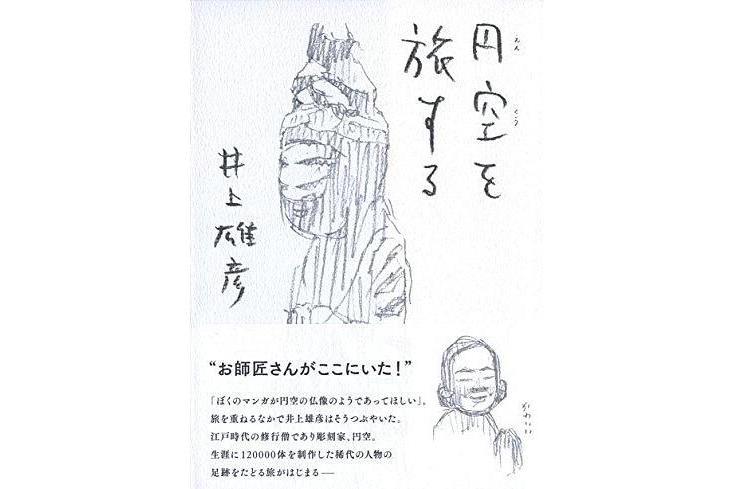 円空を
旅する
えんくう
井上雄彦
“お師匠さんがここにいた！”
「ぼくのマンガが円空の仏像のようであってほしい」。
旅を重ねるなかで井上雄彦はそうつぶやいた。
江戸時代の修行僧であり彫刻家、円空。
生涯に120000体を制作した稀代の人物の
足跡をたどる旅がはじまる──
かわいい